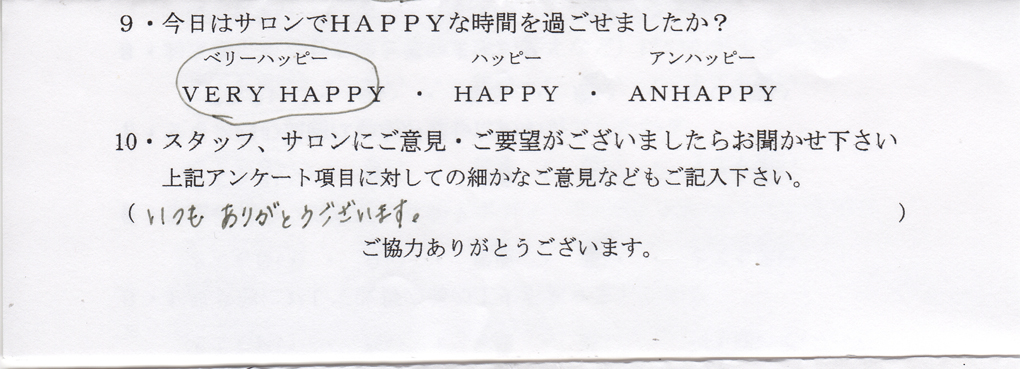 ９・今日はサロンでＨＡＰＰＹな時間を過ごせましたか？
ベリーハッピー ハッピー アンハッピー
ＶＥＲＹ ＨＡＰＰＹ ・ ＨＡＰＰＹ ・ ＡＮＨＡＰＰＹ
10・スタッフ、サロンにご意見・ご要望がございましたらお聞かせ下さい
上記アンケート項目に対しての細かなご意見などもご記入下さい。
（ いつも ありがとうございます。 ）
ご協力ありがとうございます。